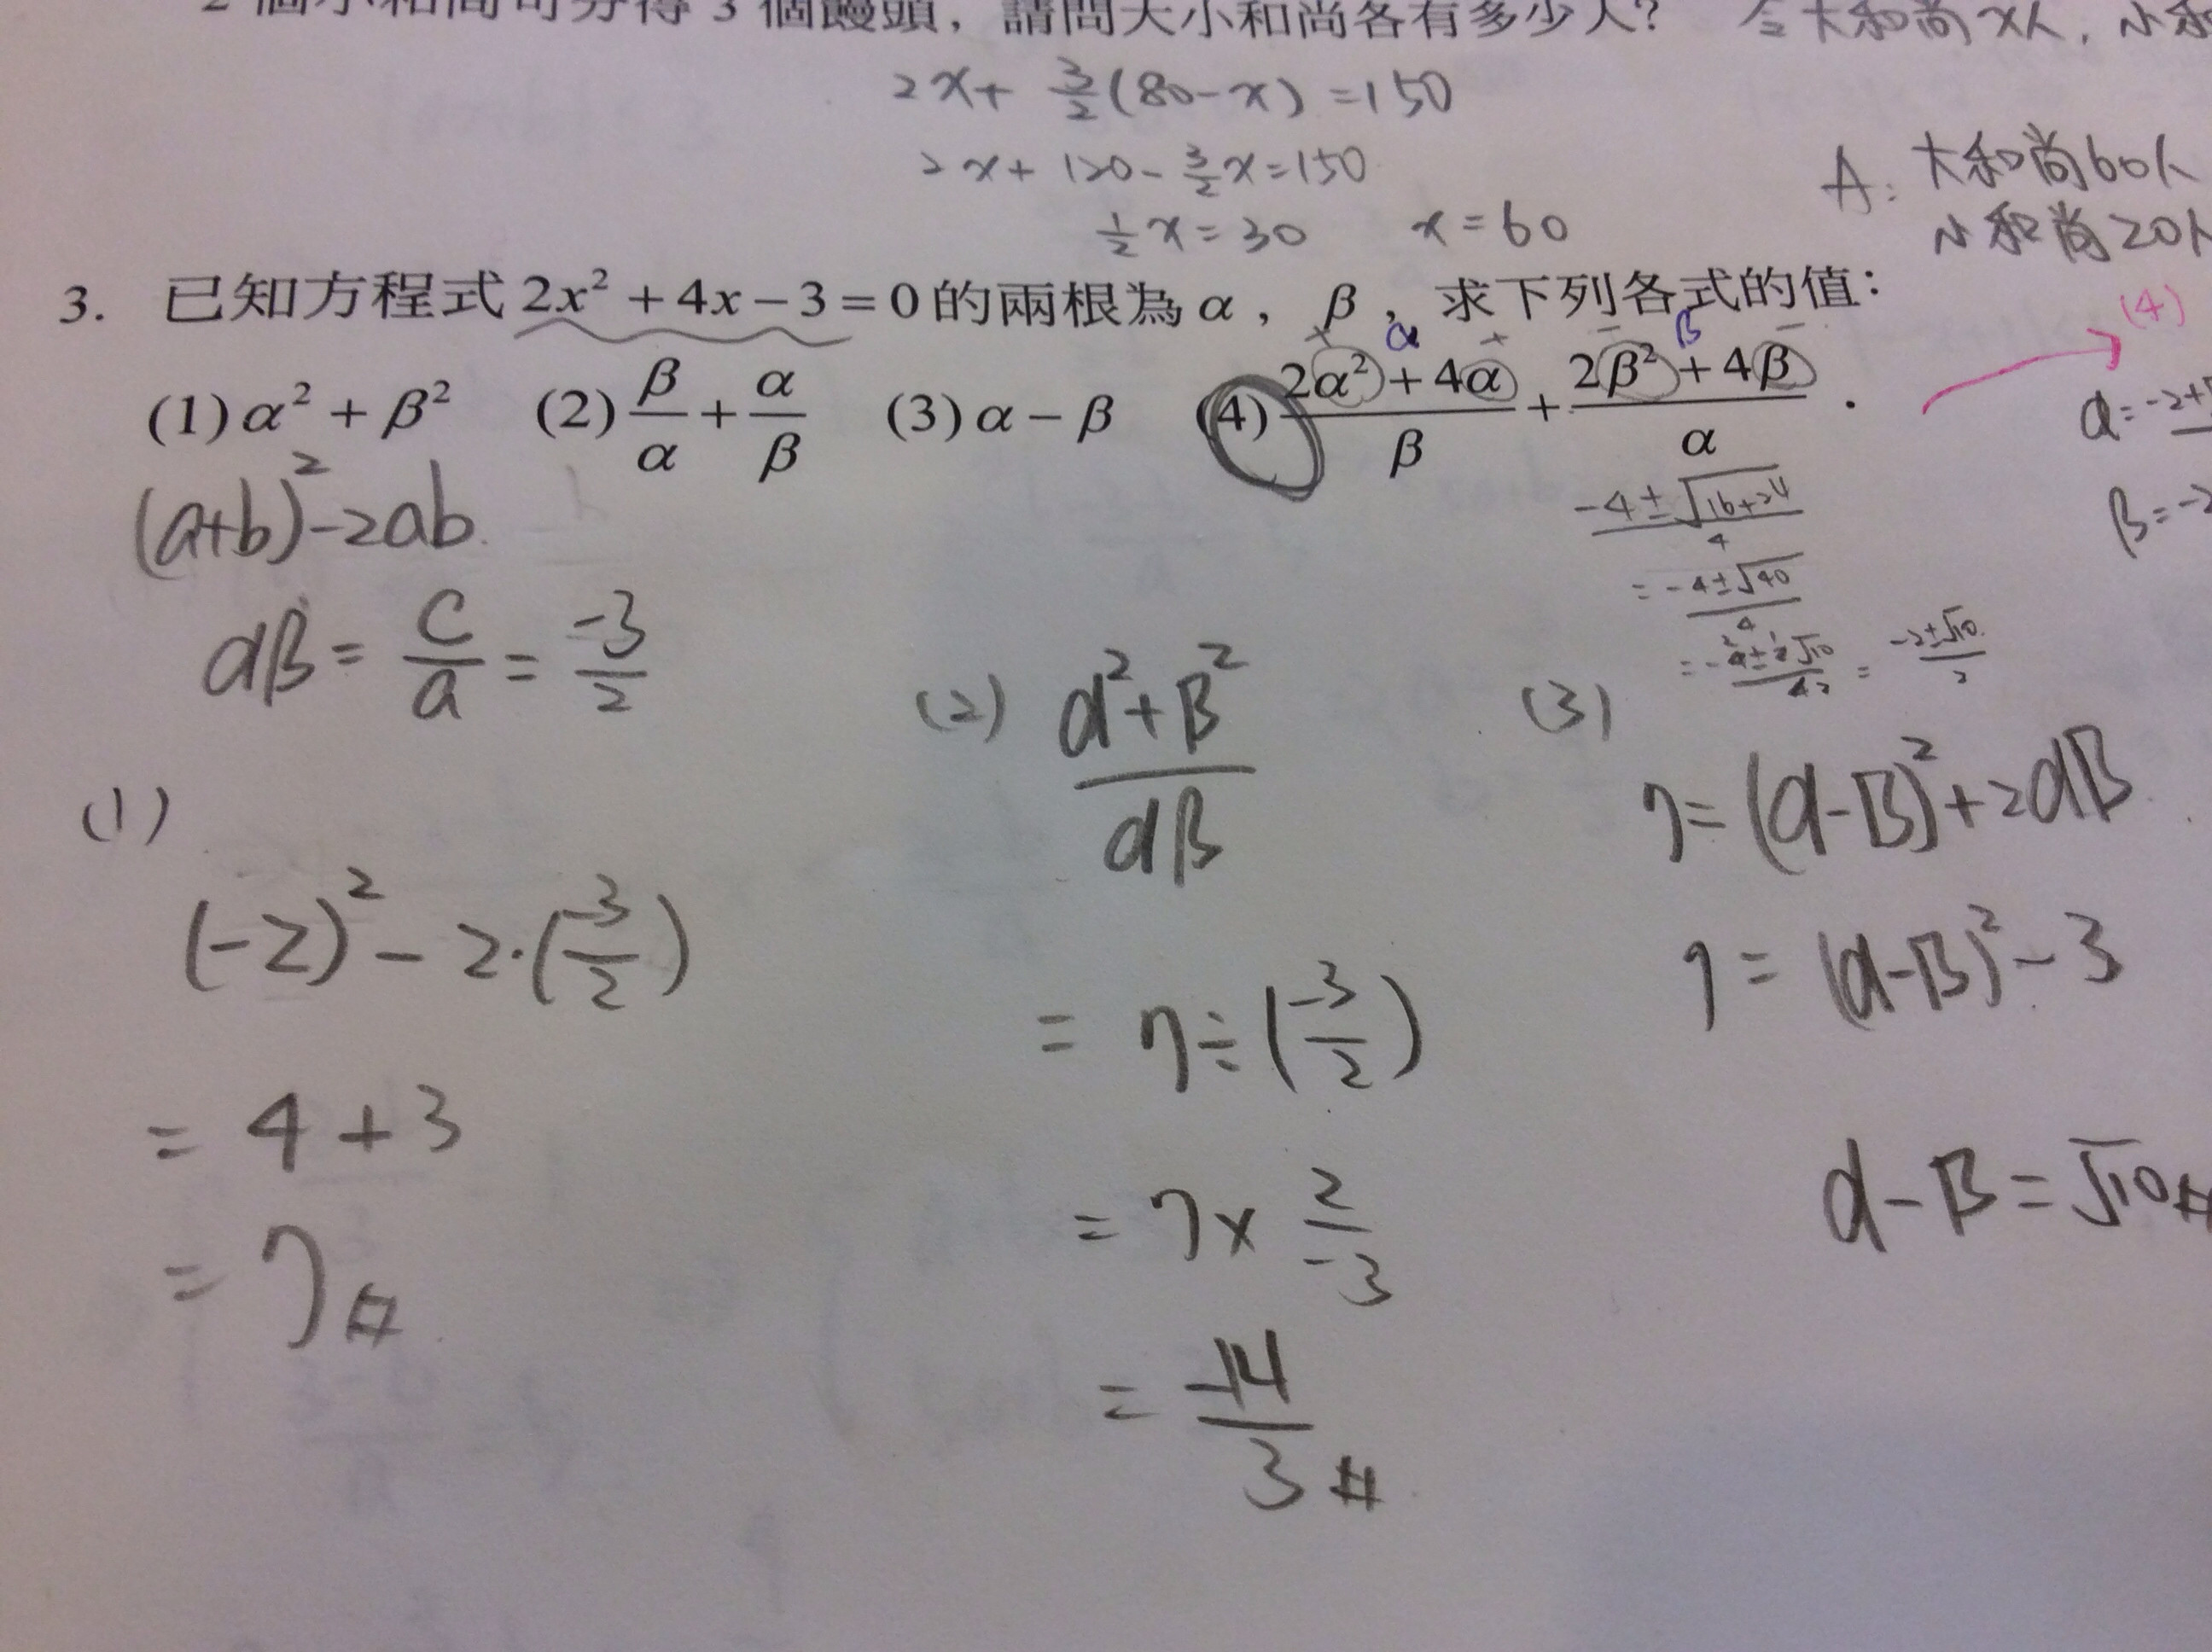 2 個小和尚可分得 3 個饅頭，請問大小和尚各有多少人？ 令大和尚x人，小和
2x+ 3/2(80-x)=150
2x+120-3/2x=150
1/2x=30 x=60
A: 大和尚60人
小和尚20人
3. 已知方程式 2x²+4x-3=0 的兩根為 α，β，求下列各式的值：
(1) α²+β² (2) β/α + α/β (3) α-β (4) (2α²+4α)/β + (2β²+4β)/α .
α β
(4)
α=-2+
β=-2
(-4±√(16+24))/4
=(-4±√40)/4
=(-4±2√10)/4 = (-2±√10)/2
(a+b)²-2ab
αβ = c/a = -3/2
(1)
(-2)²-2·(-3/2)
= 4+3
= 7#
(2) (α²+β²)/αβ
= 7÷(-3/2)
= 7× 2/-3
= -14/3 #
(3)
7=(α-β)²+2αβ
7=(α-β)²-3
α-β=√10#